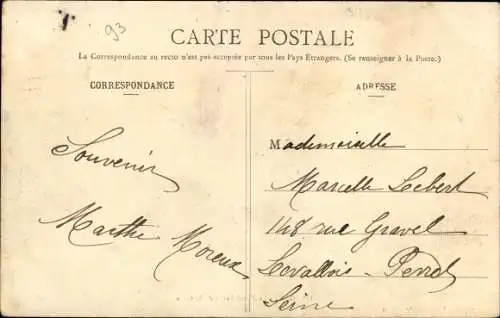 93
CARTE POSTALE
La Correspondance au recto n'est pas acceptée par tous les Pays Etrangers. (Se renseigner à la Poste.)
CORRESPONDANCE
Souvenir
Marthe Moreux
ADRESSE
Mademoiselle
Marcelle Lebert
148 rue Gravel
Levallois-Perret
Seine